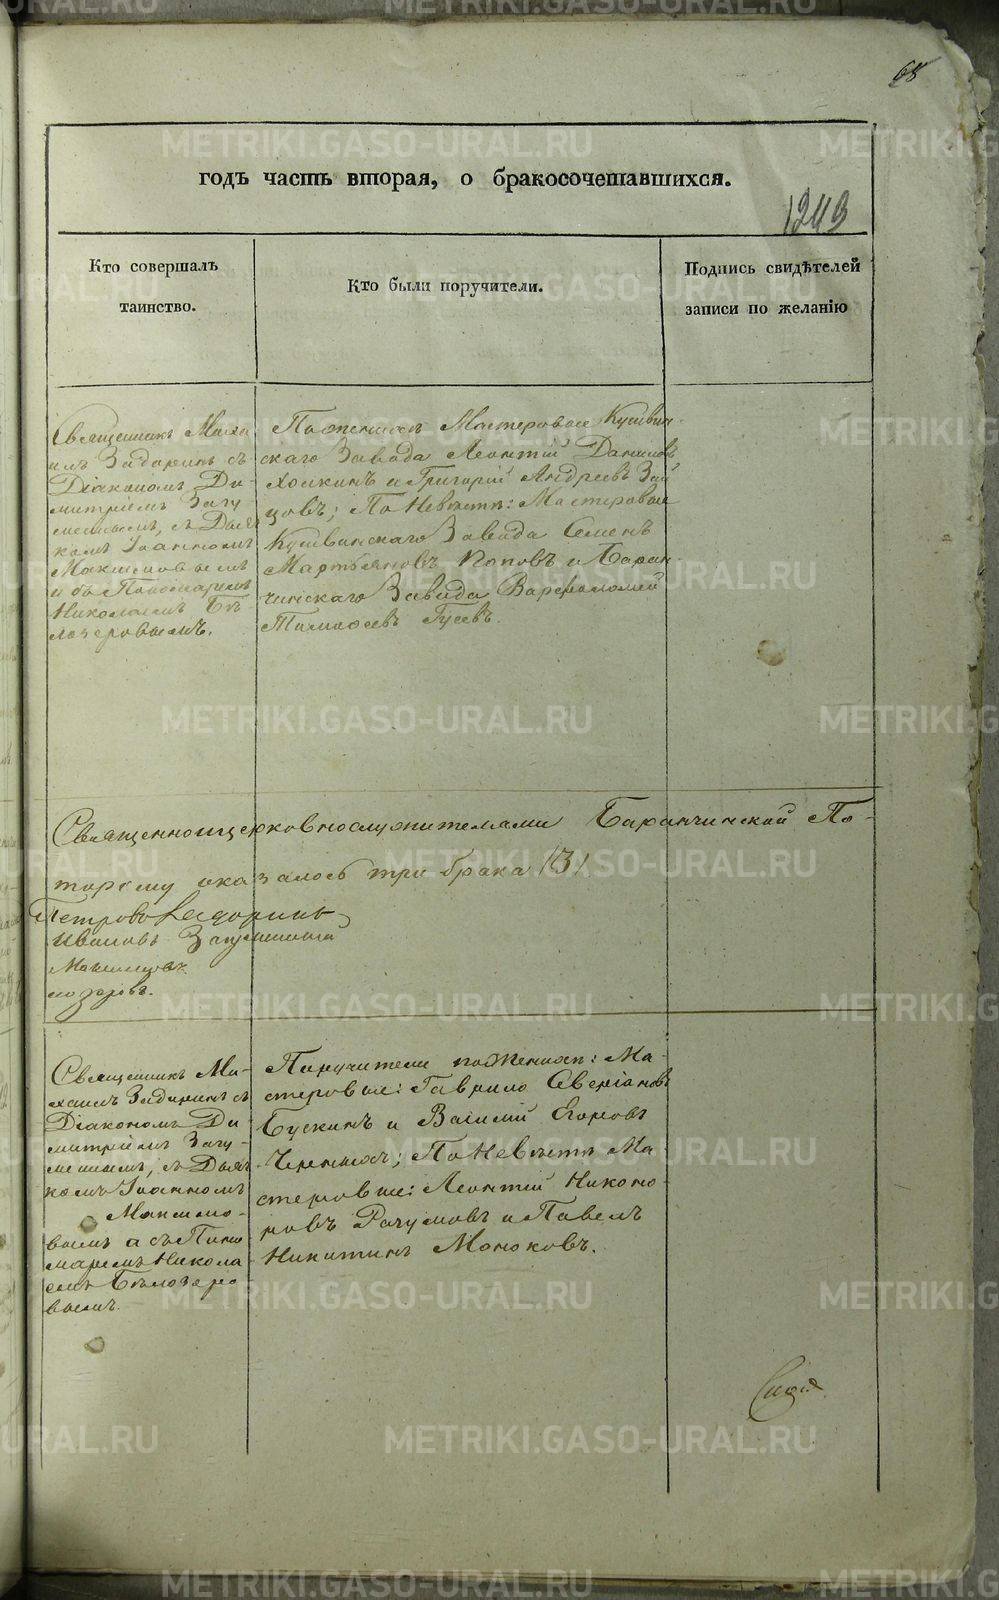 68
годъ часть вторая, о бракосочетавшихся.
1243
Кто совершалъ
таинство.
Кто были поручители.
Подпись свидѣтелей
записи по желанію
Священникъ Миха
илъ Задоринъ съ
Діакономъ Ди-
митріемъ Загу
меннымъ, съ Дьяч
комъ Іоанномъ
Максимовымъ
и съ Пономаремъ
Николаемъ Бѣ-
лозеровымъ.
По женихѣ Мастеровые Кушвин
скаго Завода Леонтій Даниловъ
Холкинъ и Григорій Андреевъ Зай
цовъ; По Невѣстѣ: Мастеровые
Кушвинскаго Завода Семенъ
Мартьяновъ Поповъ и Баран-
чинскаго Завода Варфоломей
Тимофеевъ Гусевъ.
Священноцерковнослужителями Баранчинской По-
торому оказалось три брака /3/
Петровъ Задоринъ
Ивановъ Загуменный
Максимовъ
лозеровъ.
Священникъ Ми-
хаилъ Задоринъ съ
Діакономъ Ди
митріемъ Загу-
меннымъ, съ Дьяч
комъ Іоанномъ
Максимо-
вымъ а съ Поно
маремъ Никола
емъ Бѣлозеро
вымъ.
Поручители по Женихѣ: Ма-
стеровые: Гаврило Аверіановъ
Бускинъ и Василій Егоровъ
Черныхъ; По Невѣстѣ Ма-
стеровые: Леонтій Никоно-
ровъ Разумовъ и Павелъ
Никитинъ Моноковъ.
METRIKI.GASO-URAL.RU